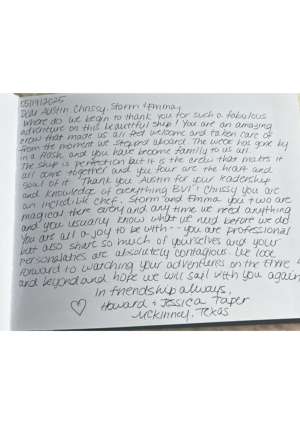 05/19/2025
Dear Austin Chrissy, Storm + Emma,
Where do we begin to thank you for such a fabulous
adventure on this beautiful ship! You are an amazing
crew that made us all feel welcome and taken care of
from the moment we stepped aboard. The week has gone by
in a flash, and you have become family to us all.
The ship is perfection but it is the crew that makes it
all come together and you four are the heart and
soul of it. Thank you Austin for your leadership
and knowledge of everything BVI! Chrissy you are
an incredible chef. Storm and Emma you two are
magical there every and any time we need anything
and you usually know what we need before we do
You are all a joy to be with -- you are professional
but also share so much of yourselves and your
personalities are absolutely contagious. We look
forward to watching your adventures on the
and beyond and hope we will sail with you again
In friendship always,
♡ Howard + Jessica Taper
McKinney, Texas